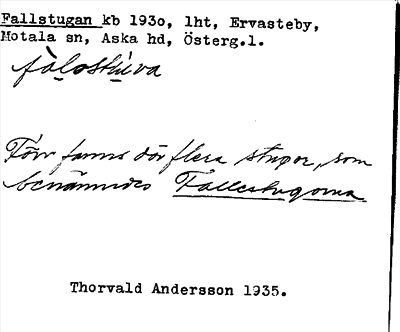 Fallstugan kb 193o, lht, Ervasteby,
Motala sn, Aska hd, Österg.l.
Förr fanns där flera stugor, som
benämndes Fallestugorna
Thorvald Andersson 1935.